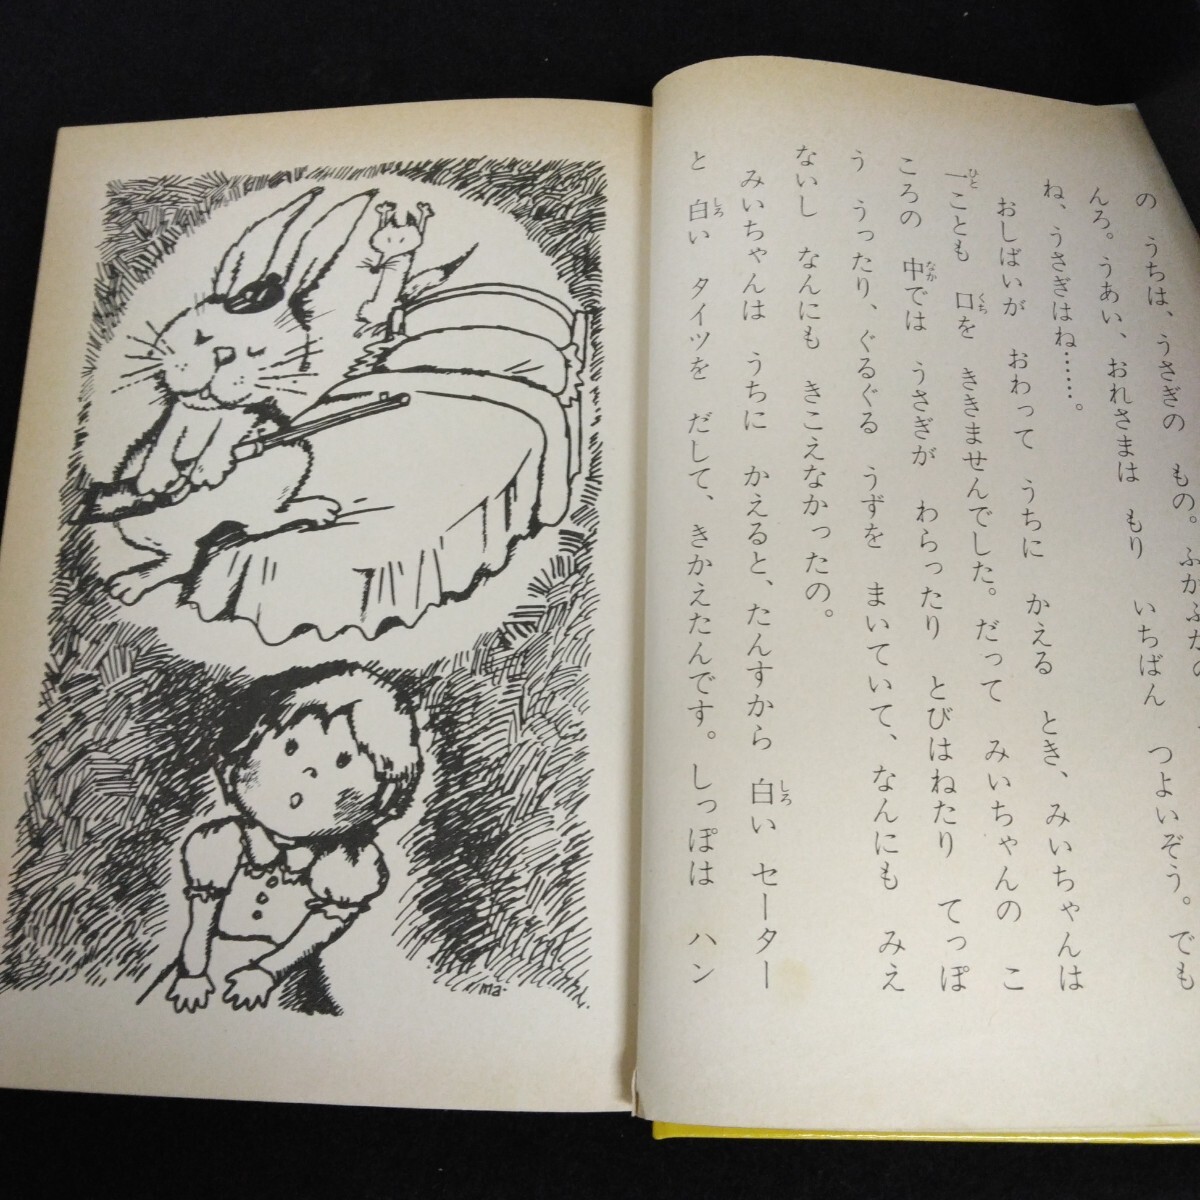 の うちは、うさぎの もの。ふかふかの
でも
んろ。うあい、おれさまは もり いちばん つよいぞう。
ね、うさぎはね……。
おしばいが おわって うちに かえる とき、みいちゃんは
一ことも 口を ききませんでした。だって みいちゃんの こ
ころの 中では うさぎが わらったり とびはねたり てっぽ
う うったり、ぐるぐる うずを まいていて、なんにも みえ
ないし なんにも きこえなかったの。
みいちゃんは うちに かえると、たんすから 白い セーター
と 白い タイツを だして、きかえたんです。しっぽは ハン
ma.